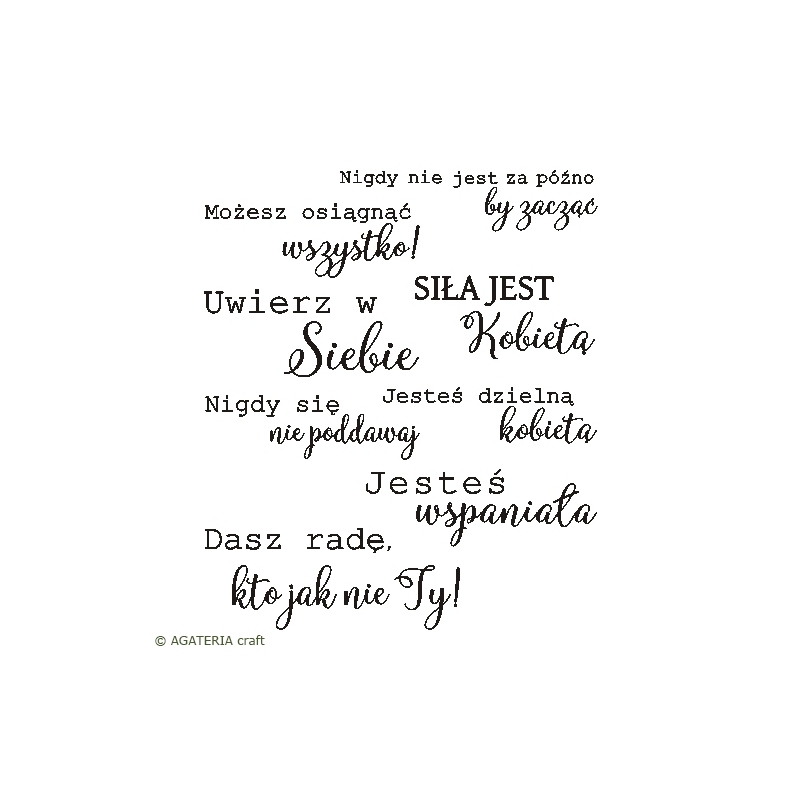 Nigdy nie jest za późno
by zacząć
Możesz osiągnąć
wszystko!
SIŁA JEST
Kobietą
Uwierz w
Siebie
Jesteś dzielną
kobietą
Nigdy się
nie poddawaj
Jesteś
wspaniała
Dasz radę,
kto jak nie Ty!
© AGATERIA craft